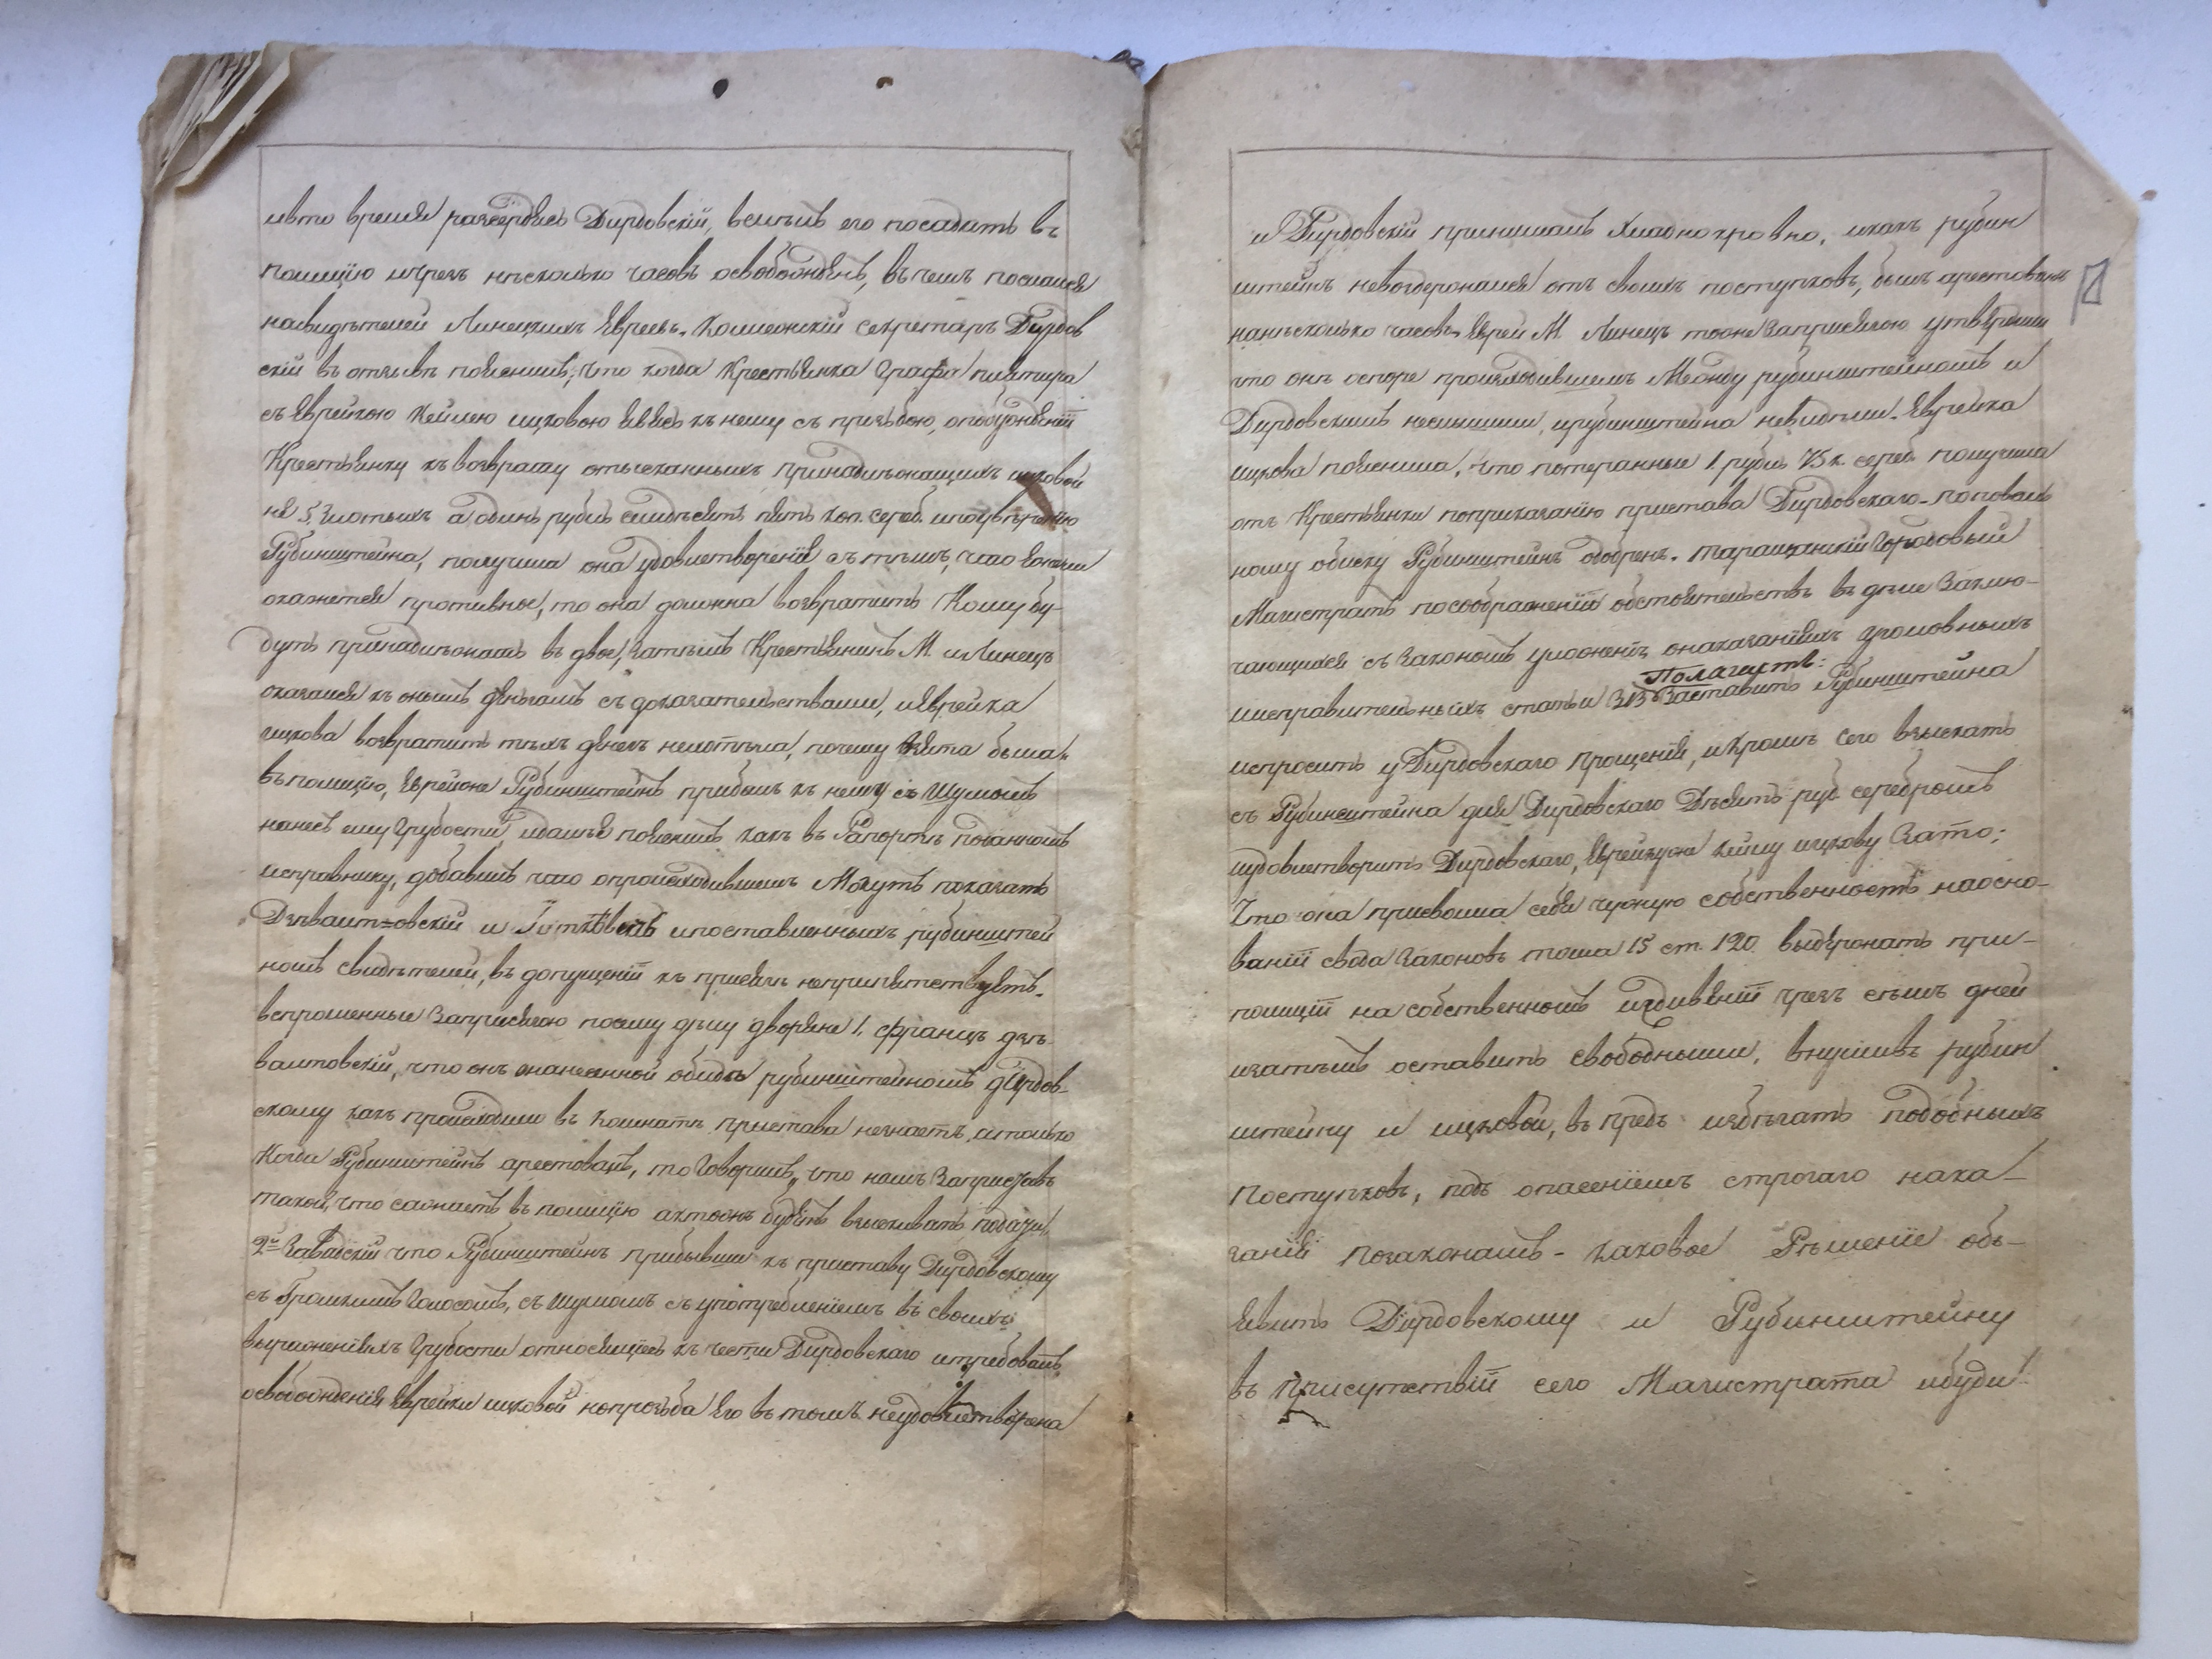 ивто время разсердясь Дирдовскій, велѣлъ его посадить въ
полицію ичрезъ нѣсколько часовъ освобожденъ, въ чемъ послался
насвидѣтелей Линецкихъ Евреевъ. Коллежскій секретарь Дирдов
скій въ отзывѣ пояснилъ, что когда Крестьянка Графа
съ Еврейкою Кейлею ицковою явясь къ нему съ прозьбою, опобужденіи
Крестьянку къ возврату отысканныхъ принадлежащихъ ицковой
не 5, злотыхъ а одинъ рубль семдѣсятъ пять коп. сереб. ипоувѣренію
Рубинштейна, получила она удовлетвореніе съ тѣмъ, что Ежели
окажется противное, то она должна возвратить Кому бу-
дутъ принадлежать въ двое, затѣмъ Крестьянинъ М. Линецъ
оказался къ онымъ деньгамъ съ доказательствами, иЕврейка
ицкова возвратить тѣхъ денегъ нехотѣла, почему взята была
въ полицію, Еврейже Рубинштейнъ прибылъ къ нему съ шумомъ
нанесъ ему Грубости, идалѣе пояснилъ какъ въ Рапортѣ поданномъ
исправнику, добавилъ что опроисходившемъ Могутъ показать
Дзѣвалтовскій и ипоставленныхъ рубинштей
номъ свидѣтелей, въ допущеніи къ присягѣ непрепятствуетъ.
вспрошенные заприсягою посему дѣлу дворяне 1. Францъ дзѣ-
валтовскій, что онъ онанесенной обидѣ рубинштейномъ дирдов-
скому какъ происходило въ комнатѣ пристава незнаетъ, итолько
Когда Рубинштейнъ арестованъ, то Говорилъ, что намъ Заприставъ
такой, что сажаетъ въ полицію актожъ будетъ взыскивать подати,
2й Завадскій что Рубинштейнъ прибывши къ приставу Дирдовскому
съ Громкимъ Голосомъ, съ шумомъ съ употребленіемъ въ своихъ
выраженіяхъ Грубости относящіеся къ чести Дирдовскаго итребовалъ
освобожденія Еврейки ицковой нопрозьба Его въ томъ неудовлетворена
и Дирдовскій принималъ Хладнокровно, икакъ рубин
штейнъ невоздержался отъ своихъ поступковъ, былъ арестованъ
нанѣсколько часовъ. Евреи М. Линецъ тоже заприсягою утвердили
что онѣ оспоре происходившемъ Между рубинштейномъ и
Дирдовскимъ неслышали, ирубинштейна невидѣли. Еврейка
ицкова пояснила, что потерянные 1. рубль 75 к. сереб. получила
отъ Крестьянки поприказанію пристава Дирдовскаго. поповаль
ному обыску Рубинштейнъ одобренъ. таращанскій Городовый
Магистратъ посоображеніи обстоятельствъ въ дѣле Заклю-
чающихся съ Закономъ уложеній онаказаніяхъ уголовныхъ
Полагаетъ:
иисправительныхъ статьи 313 Заставить Рубинштейна
испросить у Дирдовскаго прощенія, икромѣ сего взыскать
съ Рубинштейна для Дирдовскаго Дѣсять руб. серебромъ
иудовлетворить Дирдовскаго, Еврейкуже кейлу ицкову Зато;
Что она присвоила себе чужую собственность наосно-
ваніи свода Законовъ тома 15 ст. 120. выдержать при-
полиціи на собственномъ издивеніи чрезъ семь дней
изатѣмъ оставить свободными, внушивъ рубин
штейну и ицковой, въ предь избѣгать подобныхъ
поступковъ, подъ опасеніемъ строгаго нака-
занія позаконамъ - каковое Рѣшеніе объ-
явить Дирдовскому и Рубинштейну
въ присутствіи сего Магистрата ибуди